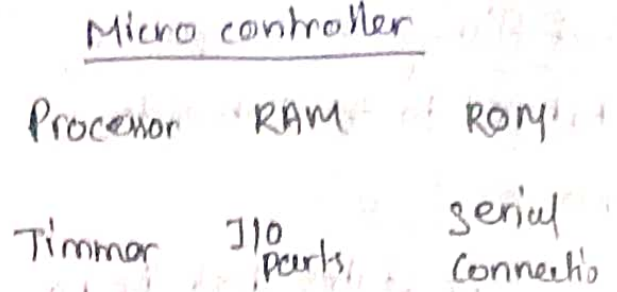 Micro controller
Processor RAM ROM
Timmer I/O ports serial connectio